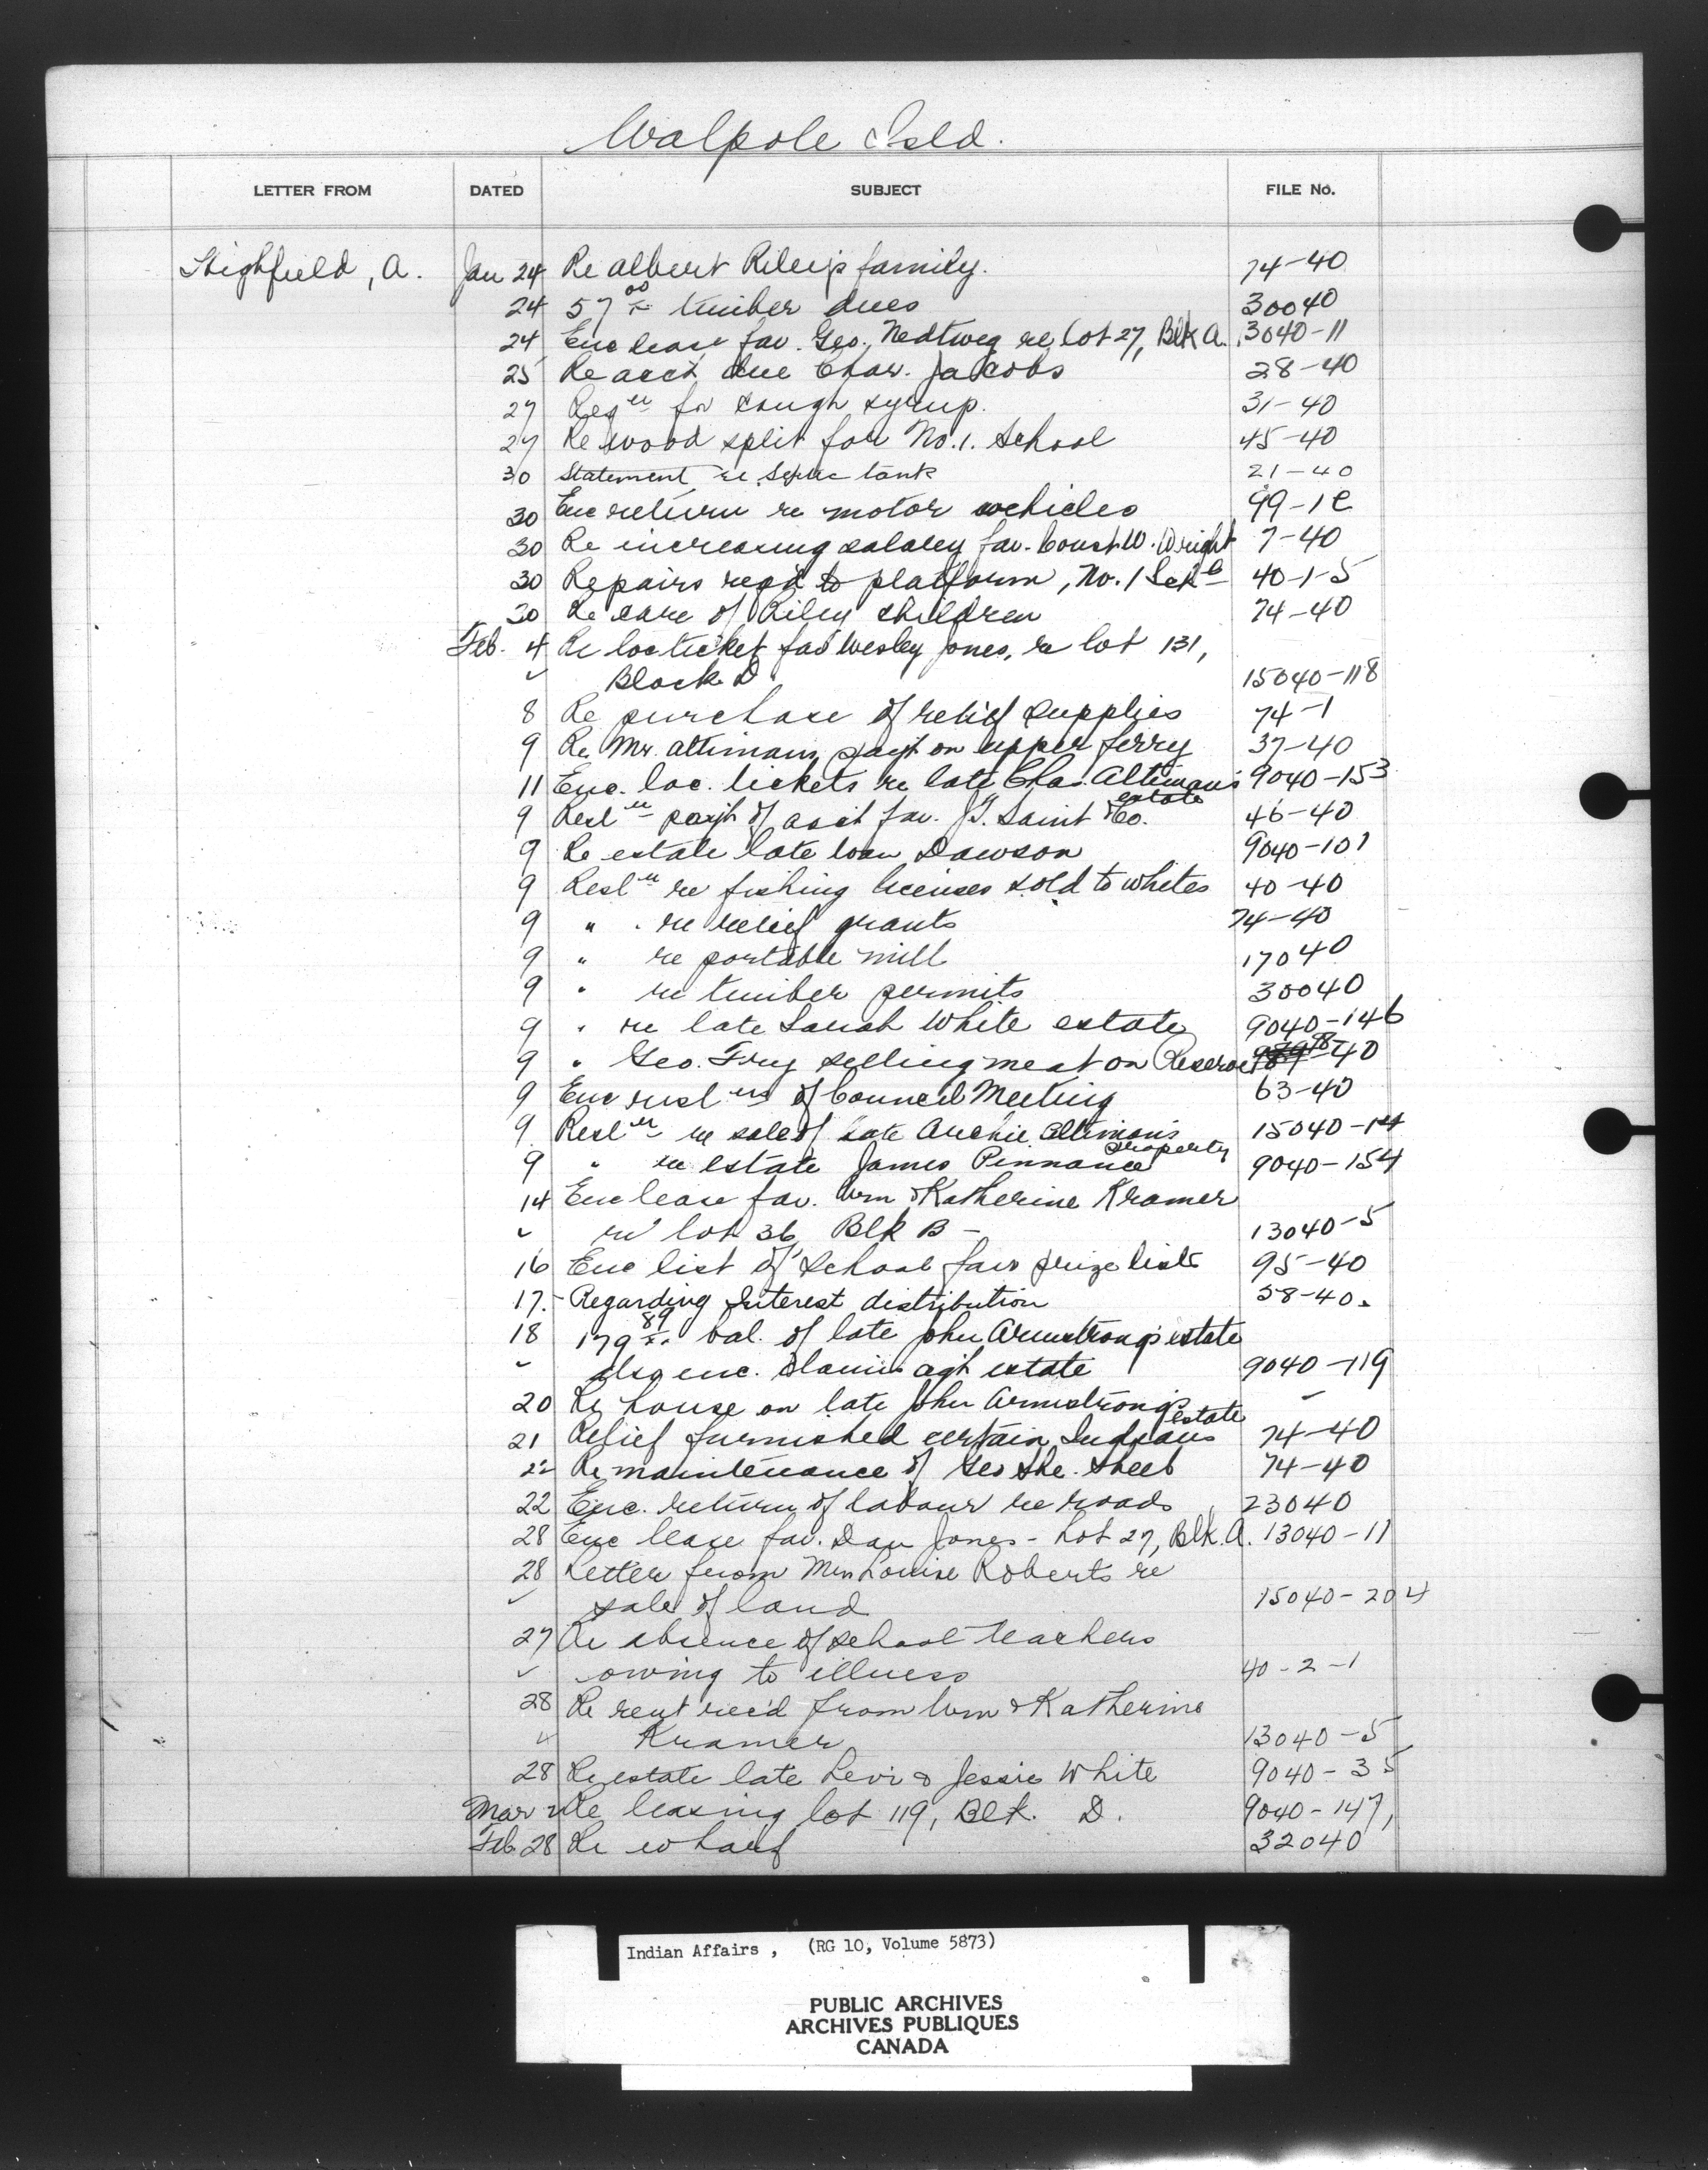 Walpole Isld.
LETTER FROM DATED SUBJECT FILE No.
Highfield, A. Jan 24 Re Albert Riley's family. 74-40
24 57 00/xx timber dues 30040
24 Enc lease fav. Geo. Nedtweg re lot 27, Blk A. 13040-11
25 Re acct due Chas. Jacobs 28-40
27 Reqn for cough syrup. 31-40
27 Re wood split for No. 1. School 45-40
30 Statement re septic tank 21-40
30 Enc return re motor vehicles 99-1C
30 Re increasing salary fav. Const. W. Wright 7-40
30 Repairs reqd to platform, No. 1 Schl 40-1-5
30 Re care of Riley children 74-40
Feb. 4 Re loc ticket fav Wesley Jones, re lot 131,
" Block D. 15040-118
8 Re purchase of relief supplies 74-1
9 Re Mr. Altiman, payt on upper ferry 37-40
11 Enc. loc. tickets re late Chas. Altiman's estate 9040-153
9 Resln payt of acct fav. J.G. Saint & Co. 46-40
9 Re estate late Wm Dawson 9040-101
9 Resln re fishing licenses sold to whites 40-40
9 " re relief grants 74-40
9 " re portable mill 17040
9 " re timber permits 30040
9 " re late Sarah White estate 9040-146
9 " Geo. Fry selling meat on Reserve -40
9 Enc reslns of Council Meeting 63-40
9 Resln re sale of late Archie Altiman's property 15040-14
9 " re estate James Pinnance 9040-154
14 Enc lease fav. Wm & Katherine Kramer
" re lot 36, Blk B - 13040-5
16 Enc list of school fair prize lists 95-40
17.- Regarding Interest distribution 58-40.
18 179 89/xx bal. of late John Armstrong's estate
" also enc. claims agt estate 9040-119
20 Re house on late John Armstrong's estate -
21 Relief furnished certain Indians 74-40
22 Re maintenance of Geo She. Sheeb 74-40
22 Enc. return of labour re roads 23040
28 Enc lease fav. Dan Jones - Lot 27, Blk. A. 13040-11
28 Letter from Mrs Louise Roberts re
" sale of land 15040-204
27 Re absence of school teachers
" owing to illness 40-2-1
28 Re rent rec'd from Wm & Katherine
" Kramer 13040-5
28 Re estate late Levi & Jessie White 9040-35
Mar 2 Re leasing lot 119, Blk. D. 9040-147,
Feb. 28 Re wharf 32040
Indian Affairs, (RG 10, Volume 5873)
PUBLIC ARCHIVES
ARCHIVES PUBLIQUES
CANADA